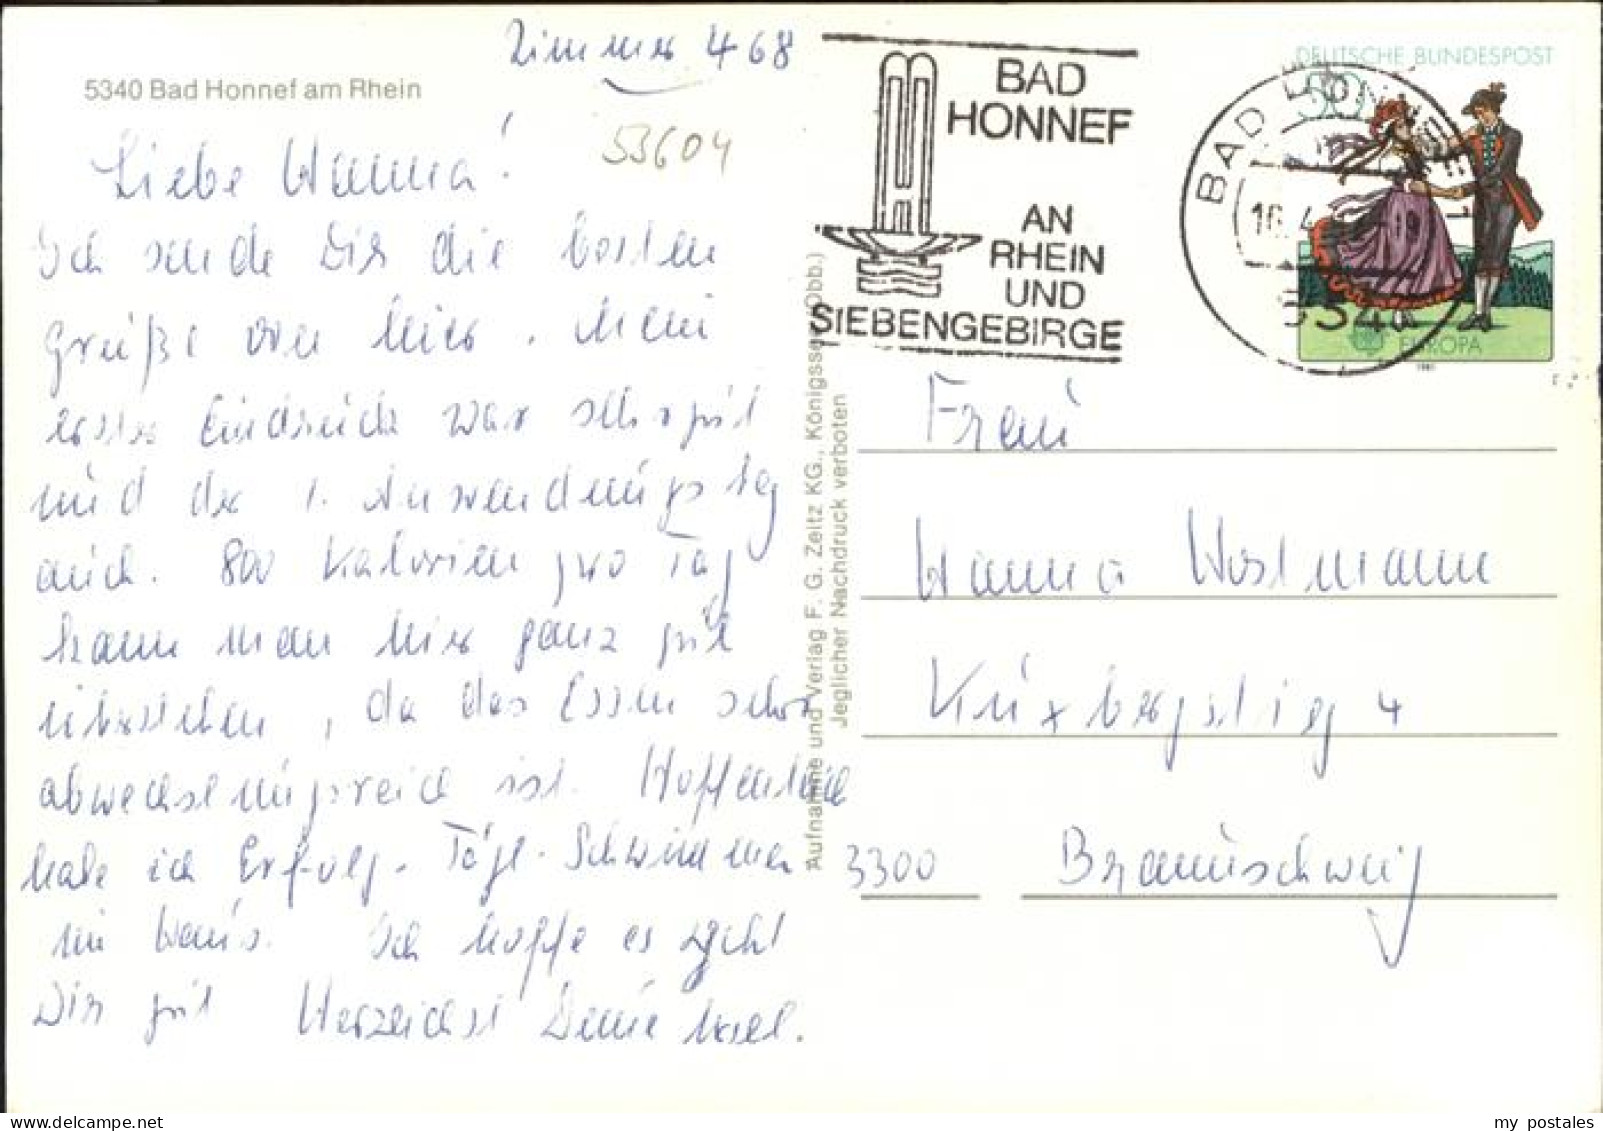 Zimmer 468
5340 Bad Honnef am Rhein
53604
Liebe Hanna!
Ich sende Dir die besten
Grüße von hier. Mein
erster Eindruck war sehr gut
und der 1. Anwendungstag
auch. 800 Kalorien pro Tag
kann man hier ganz gut
überstehen, da das Essen sehr
abwechslungsreich ist. Hoffentlich
habe ich Erfolg. Tägl. Schwimmen
im Haus. Ich hoffe es geht
Dir gut Herzlichst Deine
BAD
HONNEF
AN
RHEIN
UND
SIEBENGEBIRGE
BAD HONNEF 1
16.4.
534
DEUTSCHE BUNDESPOST
50
EUROPA
1981
Aufnahme und Verlag F. G. Zeitz KG., Königssee (Obb.)
Jeglicher Nachdruck verboten
Frau
Hanna Wostmann
Kruxbergstieg 4
3300 Braunschweig
my postales